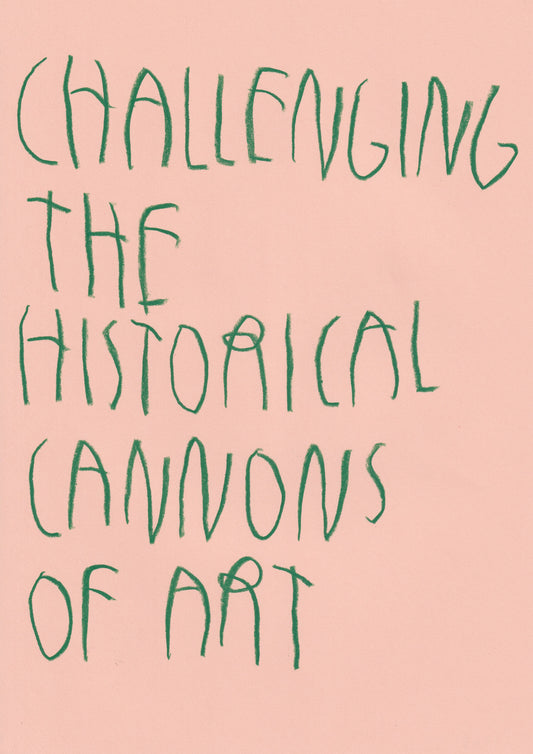 CHALLENGING
THE
HISTORICAL
CANNONS
OF ART